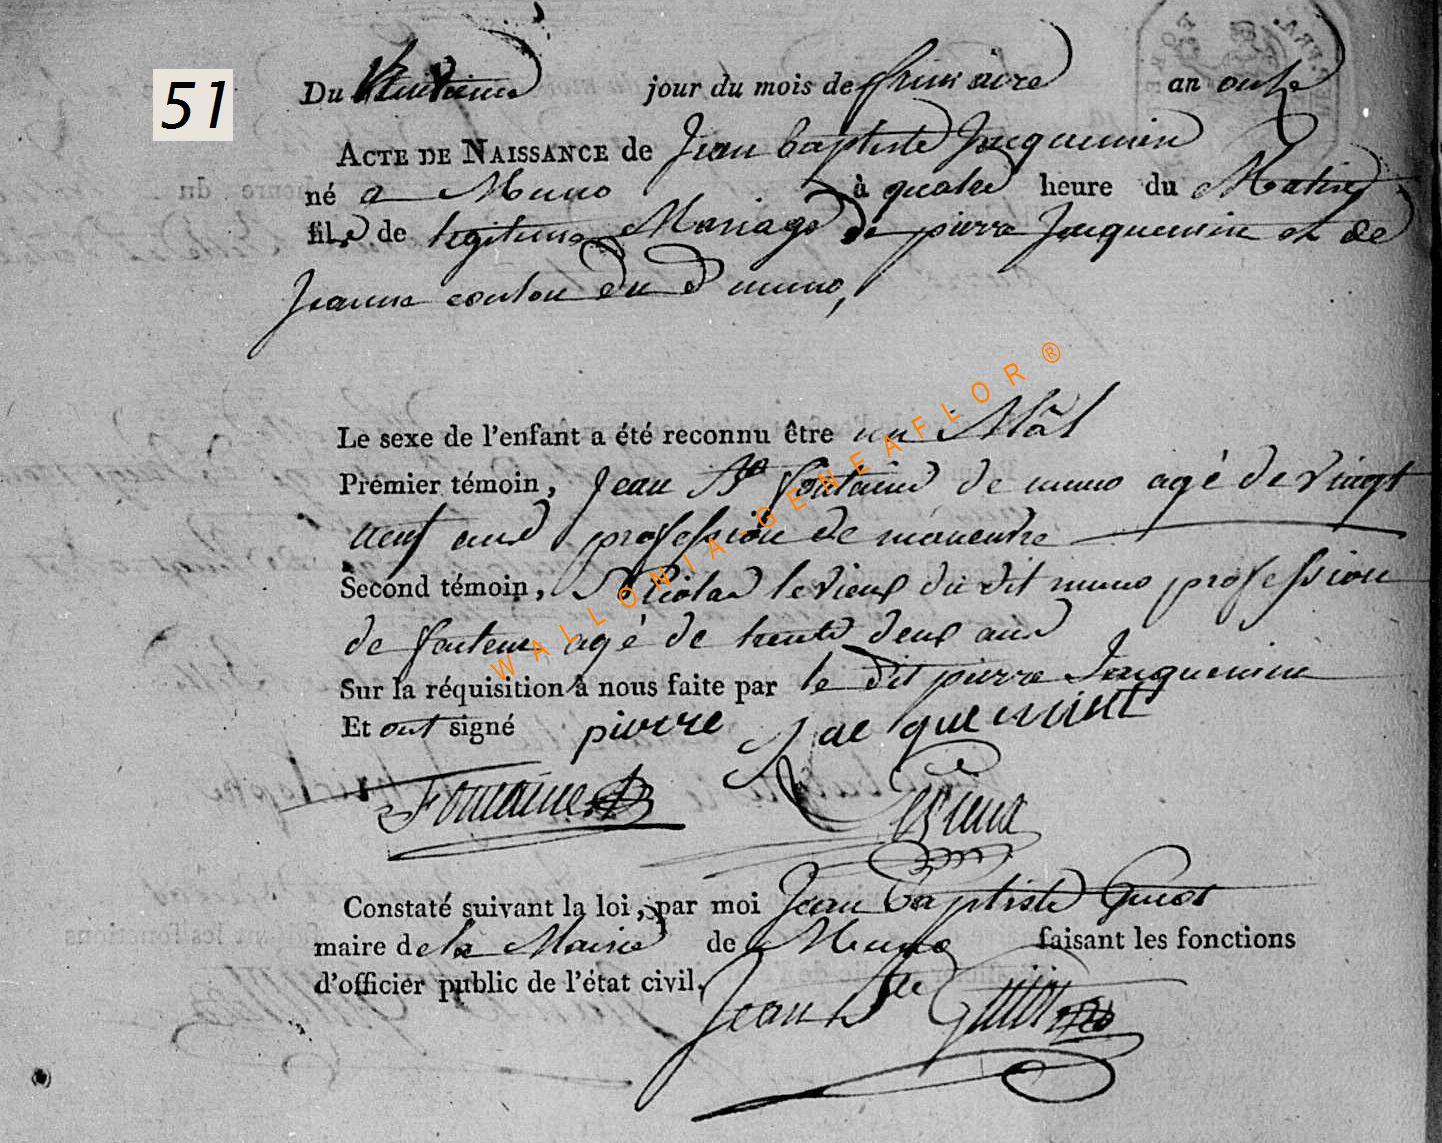 51
Du huitieme jour du mois de frimaire an onze
ACTE DE NAISSANCE de Jean baptiste Jacquemin
né a Muno à quatre heure du Matin
fils de legitime Mariage de pierre Jacquemin et de
Jeanne du d muno,
Le sexe de l'enfant a été reconnu être un Mâl
Premier témoin, Jean Bte fontaine de muno agé de vingt
neuf ans profession de manœuvre
Second témoin, Nicolas le vieux du dit muno profession
de agé de trente deux ans
Sur la réquisition à nous faite par le dit pierre Jacquemin
Et ont signé pierre Jacquemint
Fontaine Levieux
Constaté suivant la loi, par moi Jean baptiste Guiot
maire de la Mairie de Muno faisant les fonctions
d'officier public de l'état civil.
Jean Bte Guiot
WALLONIA-GENEAFLOR®